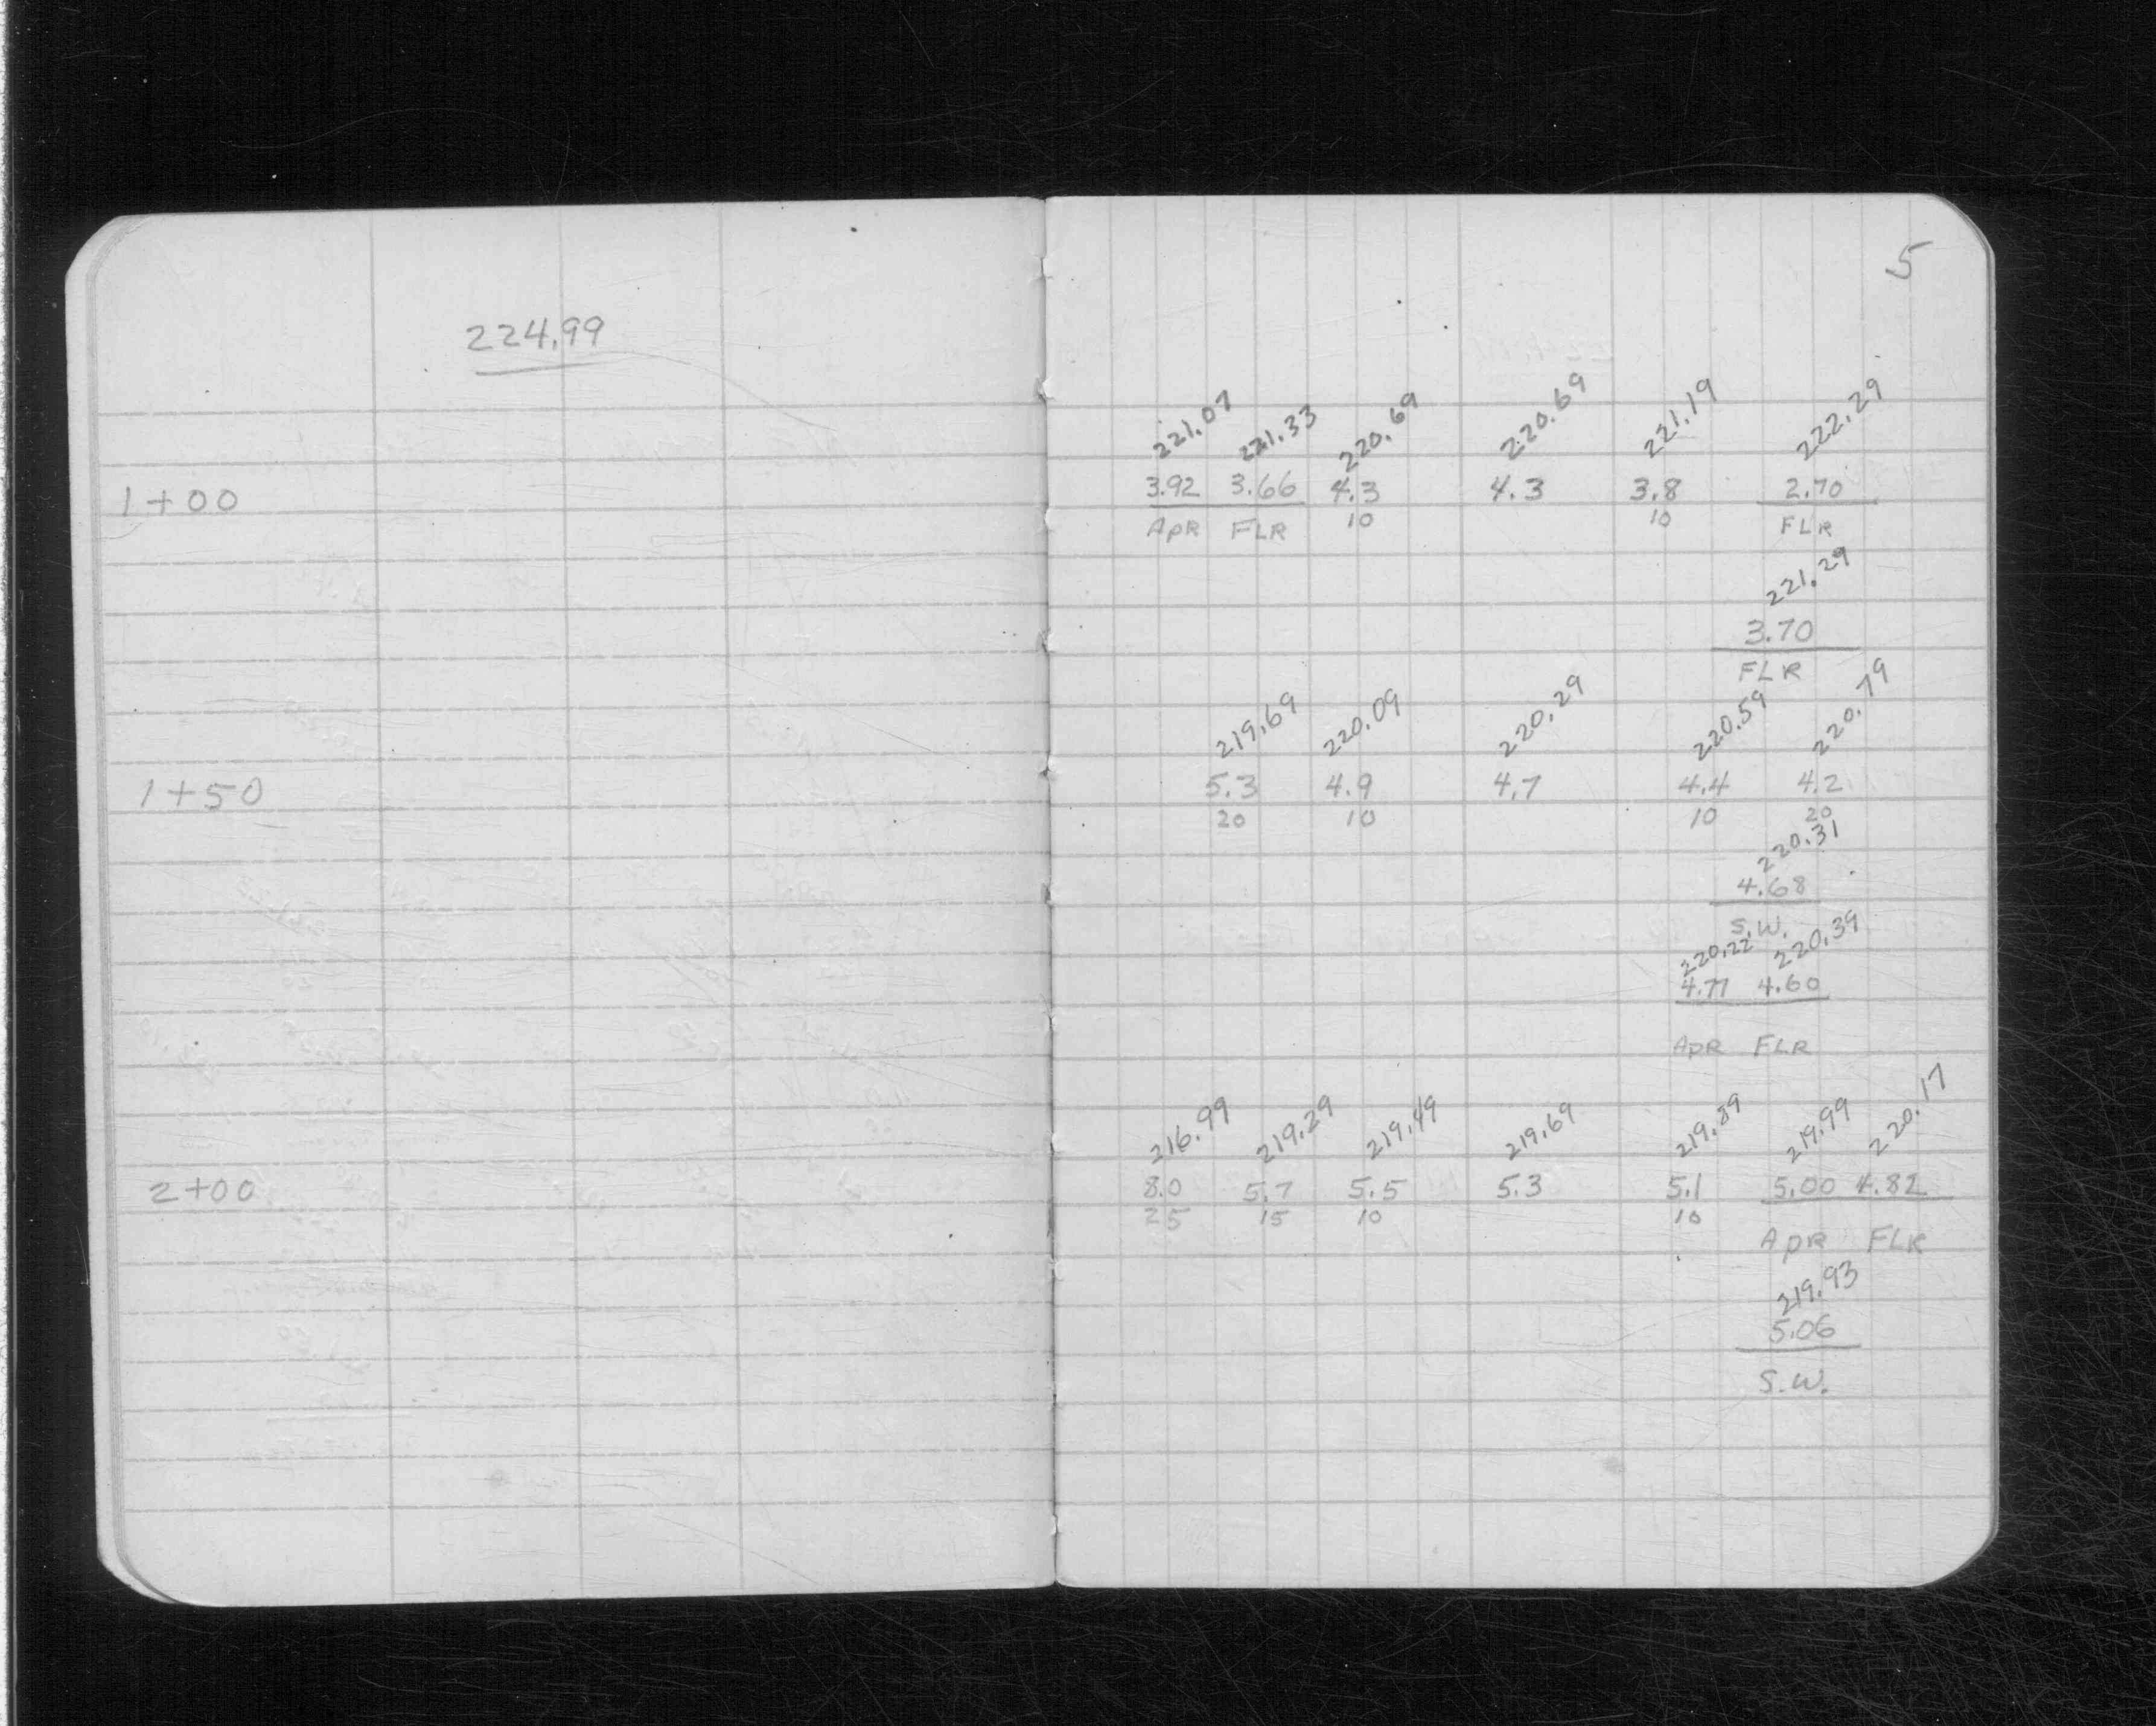 5
224.99
221.07 221.33 220.69 220.69 221.19 222.29
1+00 3.92 3.66 4.3 4.3 3.8 2.70
APR FLR 10 10 FLR
221.29
3.70
FLR
219.69 220.09 220.29 220.59 220.79
1+50 5.3 4.9 4.7 4.4 4.2
20 10 10 20
220.31
4.68
S.W.
220.22 220.39
4.77 4.60
APR FLR
216.99 219.29 219.49 219.69 219.89 219.99 220.17
2+00 8.0 5.7 5.5 5.3 5.1 5.00 4.82
25 15 10 10
APR FLR
219.93
5.06
S.W.